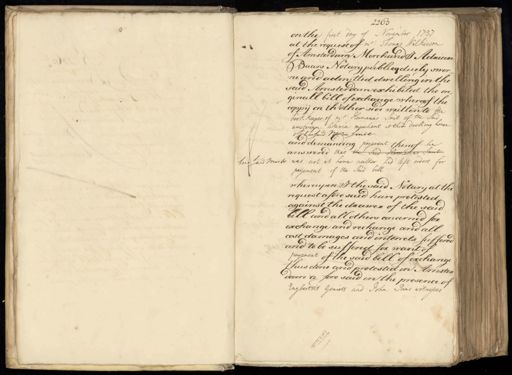 2263
on the first day of November 1737
at the request of Mr Thomas
of Amsterdam Merchand I Adriaen
Baars Notary publicq duely sworn
ne and admitted dwelling in the
said Amsterdam exhibited the ori
ginall bill of exchange whereof the
coppy on the other side unto the
book keeper of Mr Smit of the said
at their dwelling house
and demanding payment thereof he
answered that the said Smit
was not at home neither had left order for
payment of the said bill
wherupon I the said Notary at the
request afore said have protested
against the drawer of the said
bill and all others concerned for
exchange and rechange and all
cost damages and interests suffered
and to be suffered for want of
payment of the said bill of exchange
thus don and protested in Amster
dam afore said in the presence of
and John